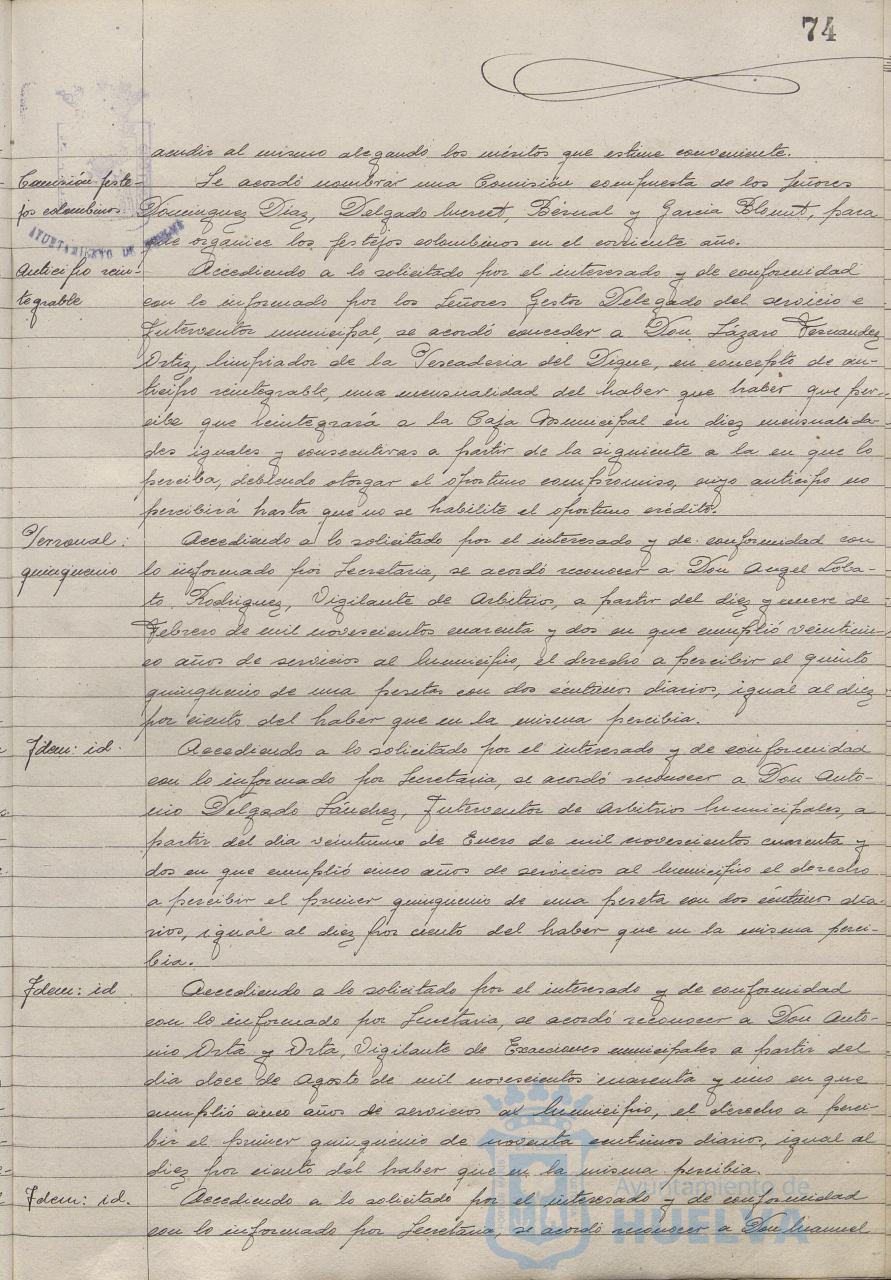 74
acudir al mismo alegando los méritos que estime conveniente.
Comisión feste-
jos colombinos
Se acordó nombrar una Comisión compuesta de los Señores
Dominguez Diaz, Delgado Merset, Bérnal y Garcia Blomet, para
que organice los festejos colombinos en el corriente año.
AYUNTAMIENTO DE HUELVA
Anticipo rein-
tegrable
Accediendo a lo solicitado por el interesado y de conformidad
con lo informado por los Señores Gestor Delegado del servicio e
Interventor municipal, se acordó conceder a Don Lázaro Fernandez
Ortiz, limpiador de la Pescaderia del Dique, en concepto de an-
ticipo reintegrable, una mensualidad del haber que haber que per-
cibe que reintegrará a la Caja Municipal en diez mensualida-
des iguales y consecutivas a partir de la siguiente a la en que lo
perciba, debiendo otorgar el oportuno compromiso, cuyo anticipo no
percibirá hasta que no se habilite el oportuno crédito.
Personal:
quinquenio
Accediendo a lo solicitado por el interesado y de conformidad con
lo informado por Secretaria, se acordó reconocer a Don Angel Loba-
to Rodriguez, Vigilante de Arbitrios, a partir del diez y nueve de
Febrero de mil novescientos cuarenta y dos en que cumplió veinticin-
co años de servicios al Municipio, el derecho a percibir el quinto
quinquenio de una pesetas con dos céntimos diarios, igual al diez
por ciento del haber que en la misma percibia.
Idem: id.
Accediendo a lo solicitado por el interesado y de conformidad
con lo informado por Secretaria, se acordó reconocer a Don Anto-
nio Delgado Sánchez, Interventor de Arbitrios Municipales, a
partir del dia veintiuno de Enero de mil novescientos cuarenta y
dos en que cumplió cinco años de servicios al Municipio el derecho
a percibir el primer quinquenio de una peseta con dos céntimos dia-
rios, igual al diez por ciento del haber que en la misma perci-
bia.
Idem: id.
Accediendo a lo solicitado por el interesado y de conformidad
con lo informado por Secretaria, se acordó reconocer a Don Anto-
nio Orta y Orta, Vigilante de Exacciones municipales a partir del
dia doce de Agosto de mil novescientos cuarenta y uno en que
cumplió cinco años de servicios al Municipio, el derecho a perci-
bir el primer quinquenio de noventa centimos diarios, igual al
diez por ciento del haber que en la misma percibia.
Idem: id.
Accediendo a lo solicitado por el interesado y de conformidad
con lo informado por Secretaria, se acordó reconocer a Don Manuel
Ayuntamiento de
HUELVA